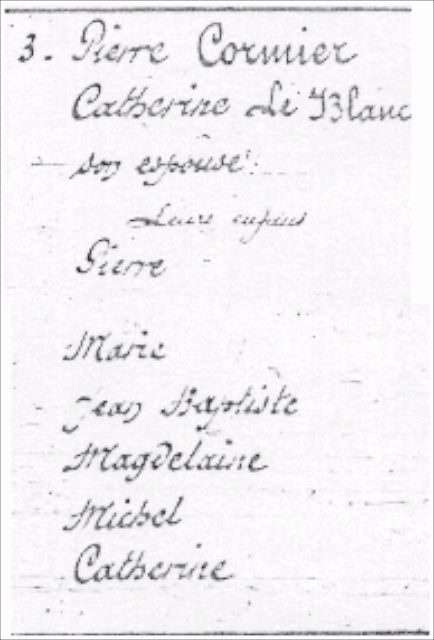 3. Pierre Cormier
Catherine Le Blanc
son espouse
Leurs enfens
Pierre
Marie
Jean Baptiste
Magdelaine
Michel
Catherine